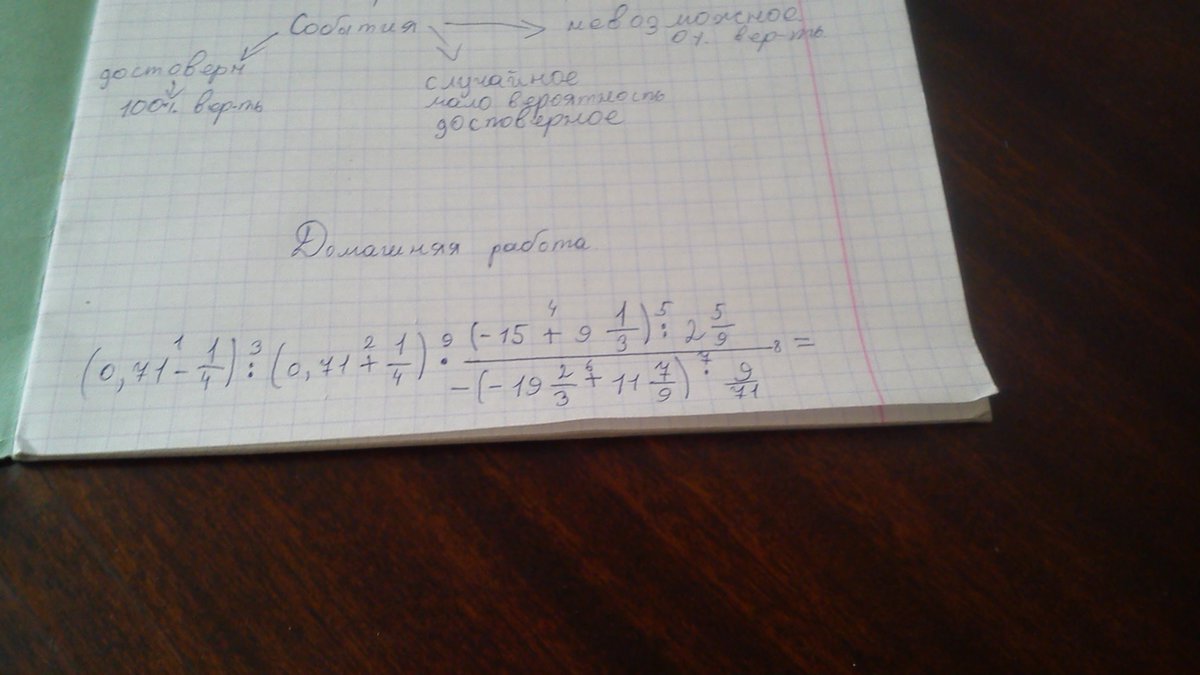 События → невозможное
0% вер-ть
достоверн
100% вер-ть
случайное
мало вероятность
достоверное
Домашняя работа
(0,71 - 1/4) : (0,71 + 1/4) · ((-15 + 9 1/3) : 2 5/9) / (-(-19 2/3 + 11 7/9) : 9/71) =
1 3 2 9 4 5 6 7 8